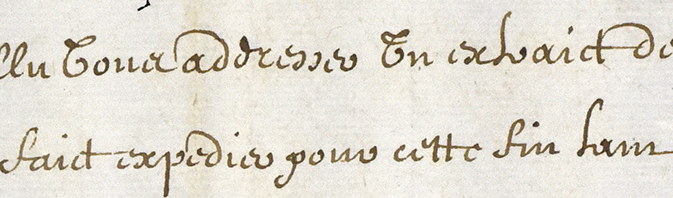 llu vous addresser un extraict de
faict expedier pour cette fin